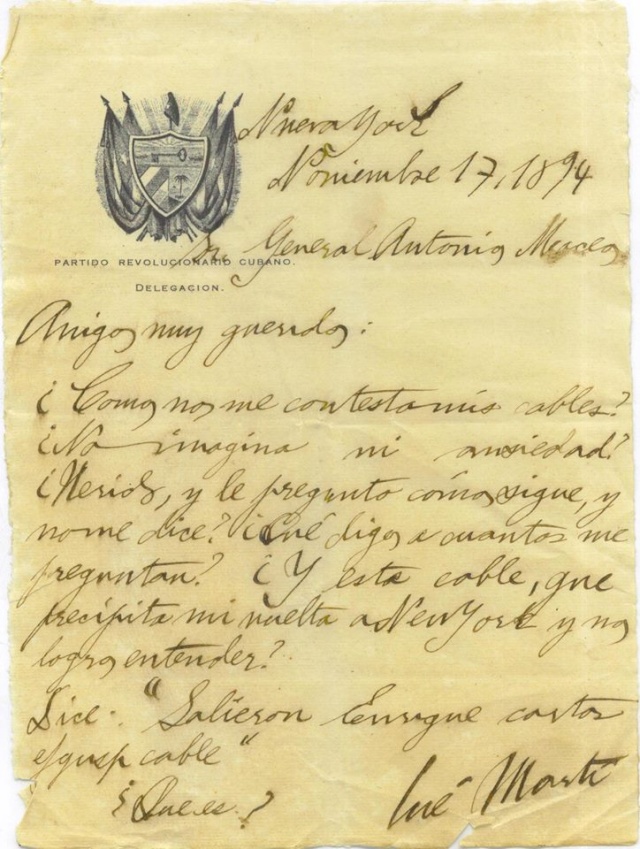 Nueva York
Noviembre 17, 1894
Sr. General Antonio Maceo
PARTIDO REVOLUCIONARIO CUBANO.
DELEGACION.
Amigo muy querido:
¿Como no me contesta mis cables?
¿No imagina mi ansiedad?
¿Herido, y le pregunto cómo sigue, y
no me dice? ¿Qué digo a cuantos me
preguntan? ¿Y este cable, que
precipita mi vuelta a New York y no
logro entender?
Dice: "Salieron Enrique cartas
cable"
¿Que es?
José Martí